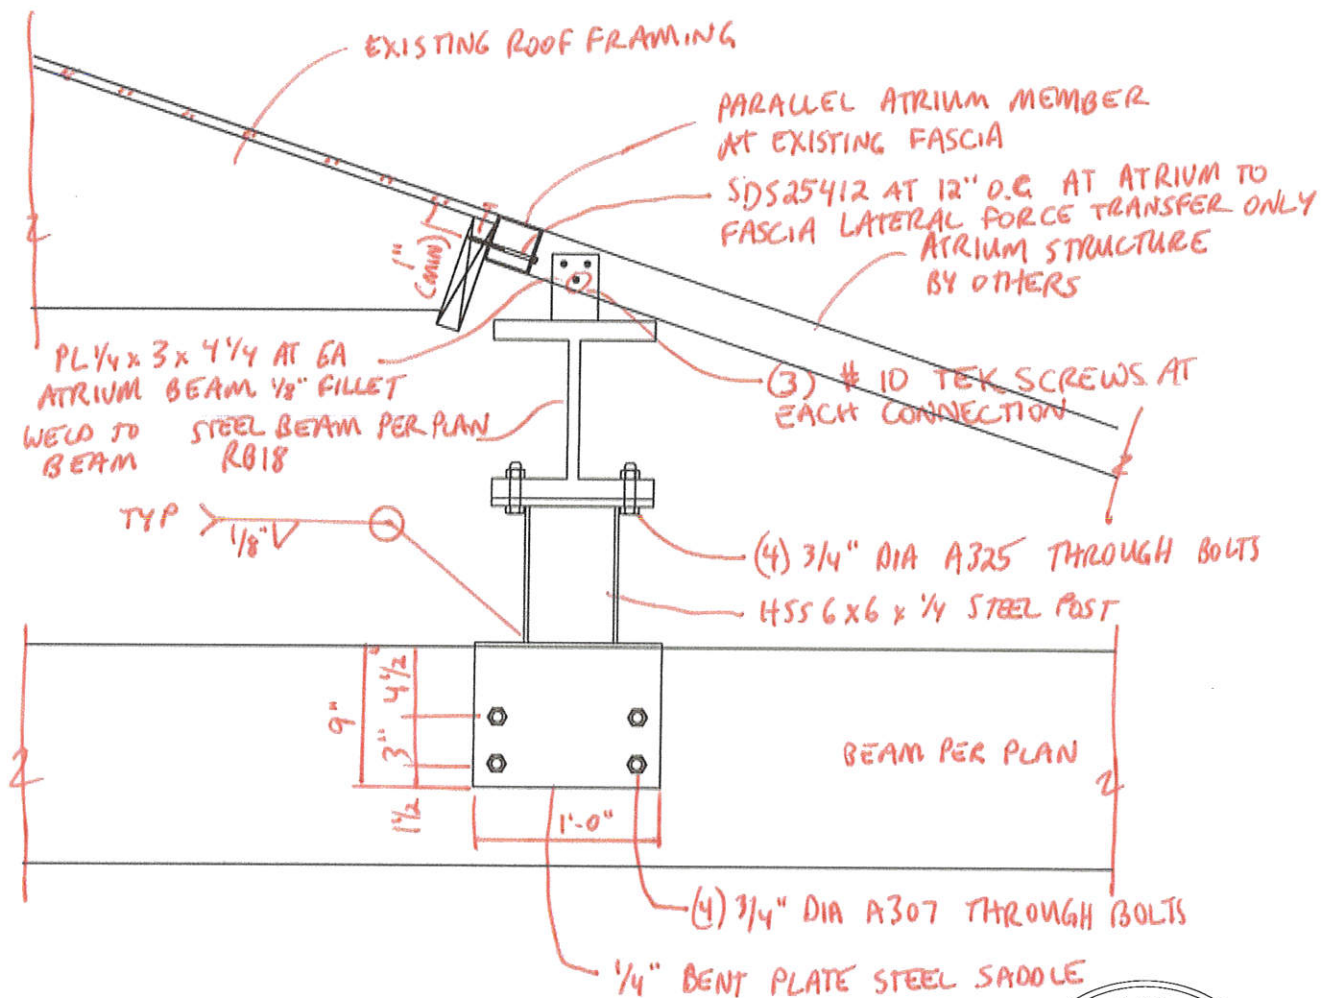 EXISTING ROOF FRAMING
PARALLEL ATRIUM MEMBER
AT EXISTING FASCIA
SDS25412 AT 12" O.C. AT ATRIUM TO
FASCIA LATERAL FORCE TRANSFER ONLY
ATRIUM STRUCTURE
BY OTHERS
1"
(MIN)
PL 1/4 x 3 x 4 1/4 AT EA
ATRIUM BEAM 1/8" FILLET
WELD TO
BEAM
STEEL BEAM PER PLAN
RB18
(3) # 10 TEK SCREWS AT
EACH CONNECTION
TYP
1/8"
(4) 3/4" DIA A325 THROUGH BOLTS
HSS 6 x 6 x 1/4 STEEL POST
9"
4 1/2
3"
1 1/2
1'-0"
BEAM PER PLAN
(4) 3/4" DIA A307 THROUGH BOLTS
1/4" BENT PLATE STEEL SADDLE